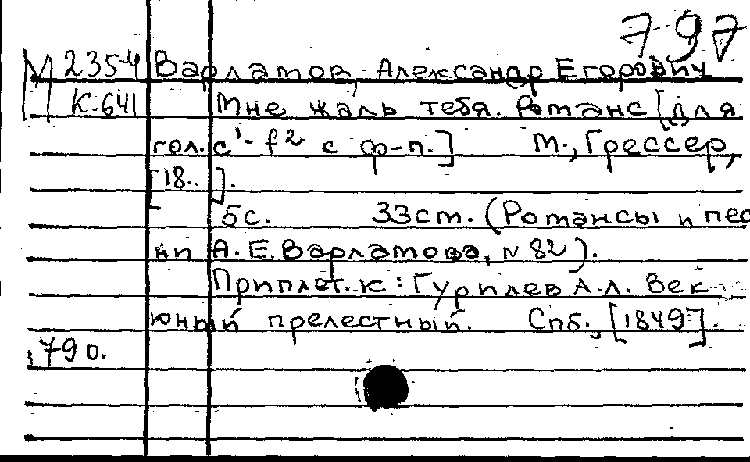 797
М 235-4 Варламов, Александр Егорович
К-641 Мне жаль тебя. Романс [для
гол. c¹-f² с ф-п.] М., Грессер,
[18..].
5с. 33см. (Романсы и пес
ни А.Е. Варламова, № 82).
Приплет. к: Гурилев А.Л. Век
юный прелестный. Спб., [1849].
790.